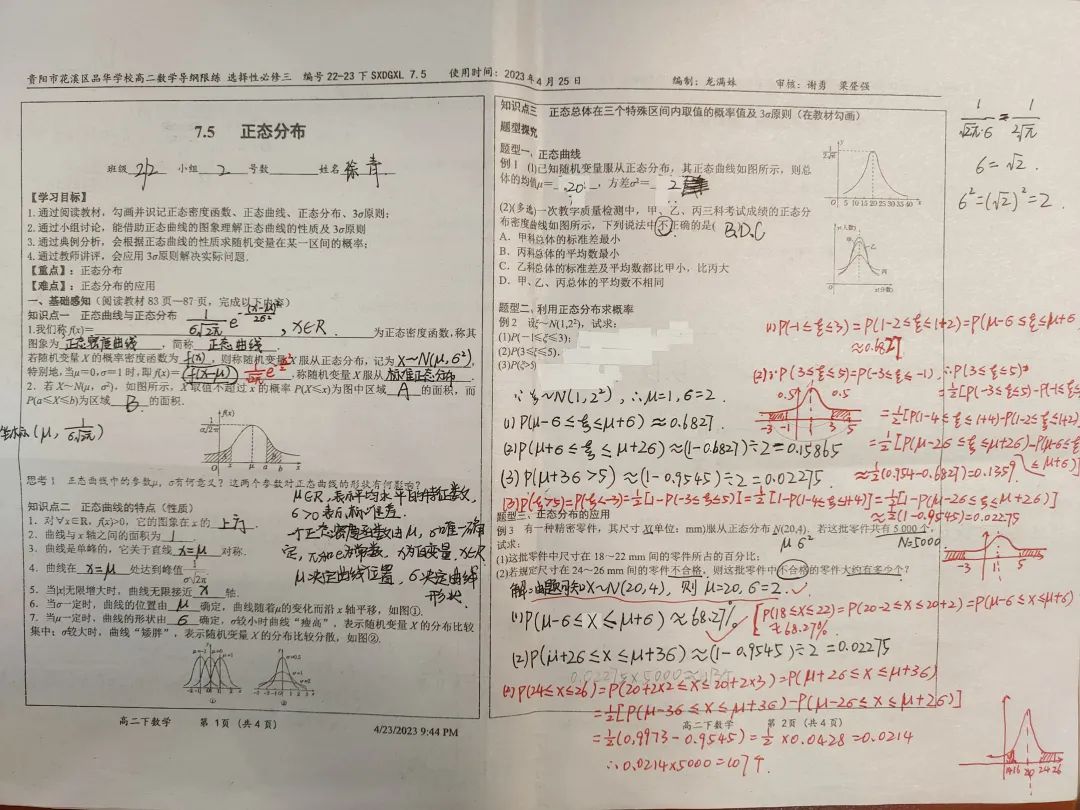 贵阳市花溪区品华学校高二数学导纲限练 选择性必修三 编号 22-23 下 SXDGXL 7.5 使用时间:2023 年 4 月 25 日 编制:龙满妹 审核:谢勇 梁登强
7.5 正态分布
班级 2/2 小组 2 号数 姓名 徐青
【学习目标】
1. 通过阅读教材,勾画并识记正态密度函数、正态曲线、正态分布、3σ原则;
2. 通过小组讨论,能借助正态曲线的图象理解正态曲线的性质及 3σ原则
3. 通过典例分析,会根据正态曲线的性质求随机变量在某一区间的概率;
4. 通过教师讲评,会应用 3σ原则解决实际问题.
【重点】:正态分布
【难点】:正态分布的应用
一、基础感知(阅读教材 83 页—87 页,完成以下内容)
知识点一 正态曲线与正态分布
1.我们称 f(x)= 1/(σ√2π) e^-(x-μ)²/2σ² , x∈R. 为正态密度函数,称其
图象为 正态密度曲线 ,简称 正态曲线 .
若随机变量 X 的概率密度函数为 f(x) ,则称随机变量 X 服从正态分布,记为 X~N(μ,σ²) .
特别地,当μ=0,σ=1 时,即 f(x)= 称随机变量 X 服从 标准正态分布 .
2. 若 X~N(μ,σ²),如图所示,X 取值不超过 x 的概率 P(X≤x)为图中区域 A 的面积,而
P(a≤X≤b)为区域 B 的面积.
(μ, 1/(σ√2π))
f(x)
x μ a b x
思考 1 正态曲线中的参数μ,σ有何意义?这两个参数对正态曲线的形状有何影响?
μ∈R,表示平均水平的特征数,
σ>0表示标准差.
一个正态密度函数由μ,σ唯一确
定,π和e为常数,x为自变量,x∈R
μ决定曲线位置,σ决定曲线
形状.
知识点二 正态曲线的特点(性质)
1. 对∀x∈R,f(x)>0,它的图象在 x 的 上方 .
2. 曲线与 x 轴之间的面积为 1 .
3. 曲线是单峰的,它关于直线 x=μ 对称.
4. 曲线在 x=μ 处达到峰值 1/(σ√2π)
5. 当|x|无限增大时,曲线无限接近 x 轴.
6. 当σ一定时,曲线的位置由 μ 确定,曲线随着μ的变化而沿 x 轴平移,如图①.
7. 当μ一定时,曲线的形状由 σ 确定,σ较小时曲线“瘦高”,表示随机变量 X 的分布比较
集中;σ较大时,曲线“矮胖”,表示随机变量 X 的分布比较分散,如图②.
① ②
高二下数学 第 1 页(共 4 页)
4/23/2023 9:44 PM
知识点三 正态总体在三个特殊区间内取值的概率值及 3σ原则(在教材勾画)
题型探究
题型一、正态曲线
例 1 (1)已知随机变量服从正态分布,其正态曲线如图所示,则总
体的均值μ= 20 ,方差σ²= 2
5 10 15 20 25 30 35 40 x
1/(√2π·σ) = 1/(2√π)
σ=√2.
σ²=(√2)²=2.
(2)(多选)一次教学质量检测中,甲、乙、丙三科考试成绩的正态分
布密度曲线如图所示,下列说法中不正确的是( B,D,C
A. 甲科总体的标准差最小
B. 丙科总体的平均数最小
C. 乙科总体的标准差及平均数都比甲小,比丙大
D. 甲、乙、丙总体的平均数不相同
y(人数)
甲 乙
丙
O x(分数)
题型二、利用正态分布求概率
例 2 设ξ~N(1,2²),试求:
(1)P(-1≤ξ≤3);
(2)P(3≤ξ≤5).
(3)P(ξ>5)
∵ξ~N(1,2²),∴μ=1,σ=2.
(1)P(μ-σ≤ξ≤μ+σ)≈0.6827
(2)P(μ+σ≤ξ≤μ+2σ)≈(1-0.6827)÷2=0.15865
(3)P(μ+3σ>5)≈(1-0.9545)÷2=0.02275
(1)P(-1≤ξ≤3)=P(1-2≤ξ≤1+2)=P(μ-σ≤ξ≤μ+σ
≈0.6827
(2)∵P(3≤ξ≤5)=P(-3≤ξ≤-1),∴P(3≤ξ≤5)=
=½[P(-3≤ξ≤5)-P(-1≤ξ
=½[P(1-4≤ξ≤1+4)-P(1-2≤ξ≤1+2)
=½[P(μ-2σ≤ξ≤μ+2σ)-P(μ-σ≤ξ
≤μ+σ)]
≈½(0.954-0.6827)=0.1359
0.5 0.5
-3 -1 1 3 5
(3)P(ξ>5)=P(ξ<-3)=½[1-P(-3≤ξ≤5)]=½[1-P(1-4≤ξ≤1+4)]=½[1-P(μ-2σ≤ξ≤μ+2σ)]
≈½(1-0.9545)=0.02275
-3 1 5
题型三、正态分布的应用
例 3 有一种精密零件,其尺寸 X(单位:mm)服从正态分布 N(20,4).若这批零件共有 5 000 个,
μ σ² N=5000
试求:
(1)这批零件中尺寸在 18~22 mm 间的零件所占的百分比;
(2)若规定尺寸在 24~26 mm 间的零件不合格,则这批零件中不合格的零件大约有多少个?
解:由题可知X~N(20,4),则μ=20,σ=2.
(1)P(μ-σ≤X≤μ+σ)≈68.27%
[P(18≤X≤22)=P(20-2≤X≤20+2)=P(μ-σ≤X≤μ+σ)
≈68.27%.
(2)P(μ+2σ≤X≤μ+3σ)≈(1-0.9545)÷2=0.02275
(2)P(24≤X≤26)=P(20+2×2≤X≤20+2×3)=P(μ+2σ≤X≤μ+3σ)
=½[P(μ-3σ≤X≤μ+3σ)-P(μ-2σ≤X≤μ+2σ)]
=½(0.9973-0.9545)=½×0.0428=0.0214
∴0.0214×5000=107个.
1416 20 2426
高二下数学 第 2 页(共 4 页)